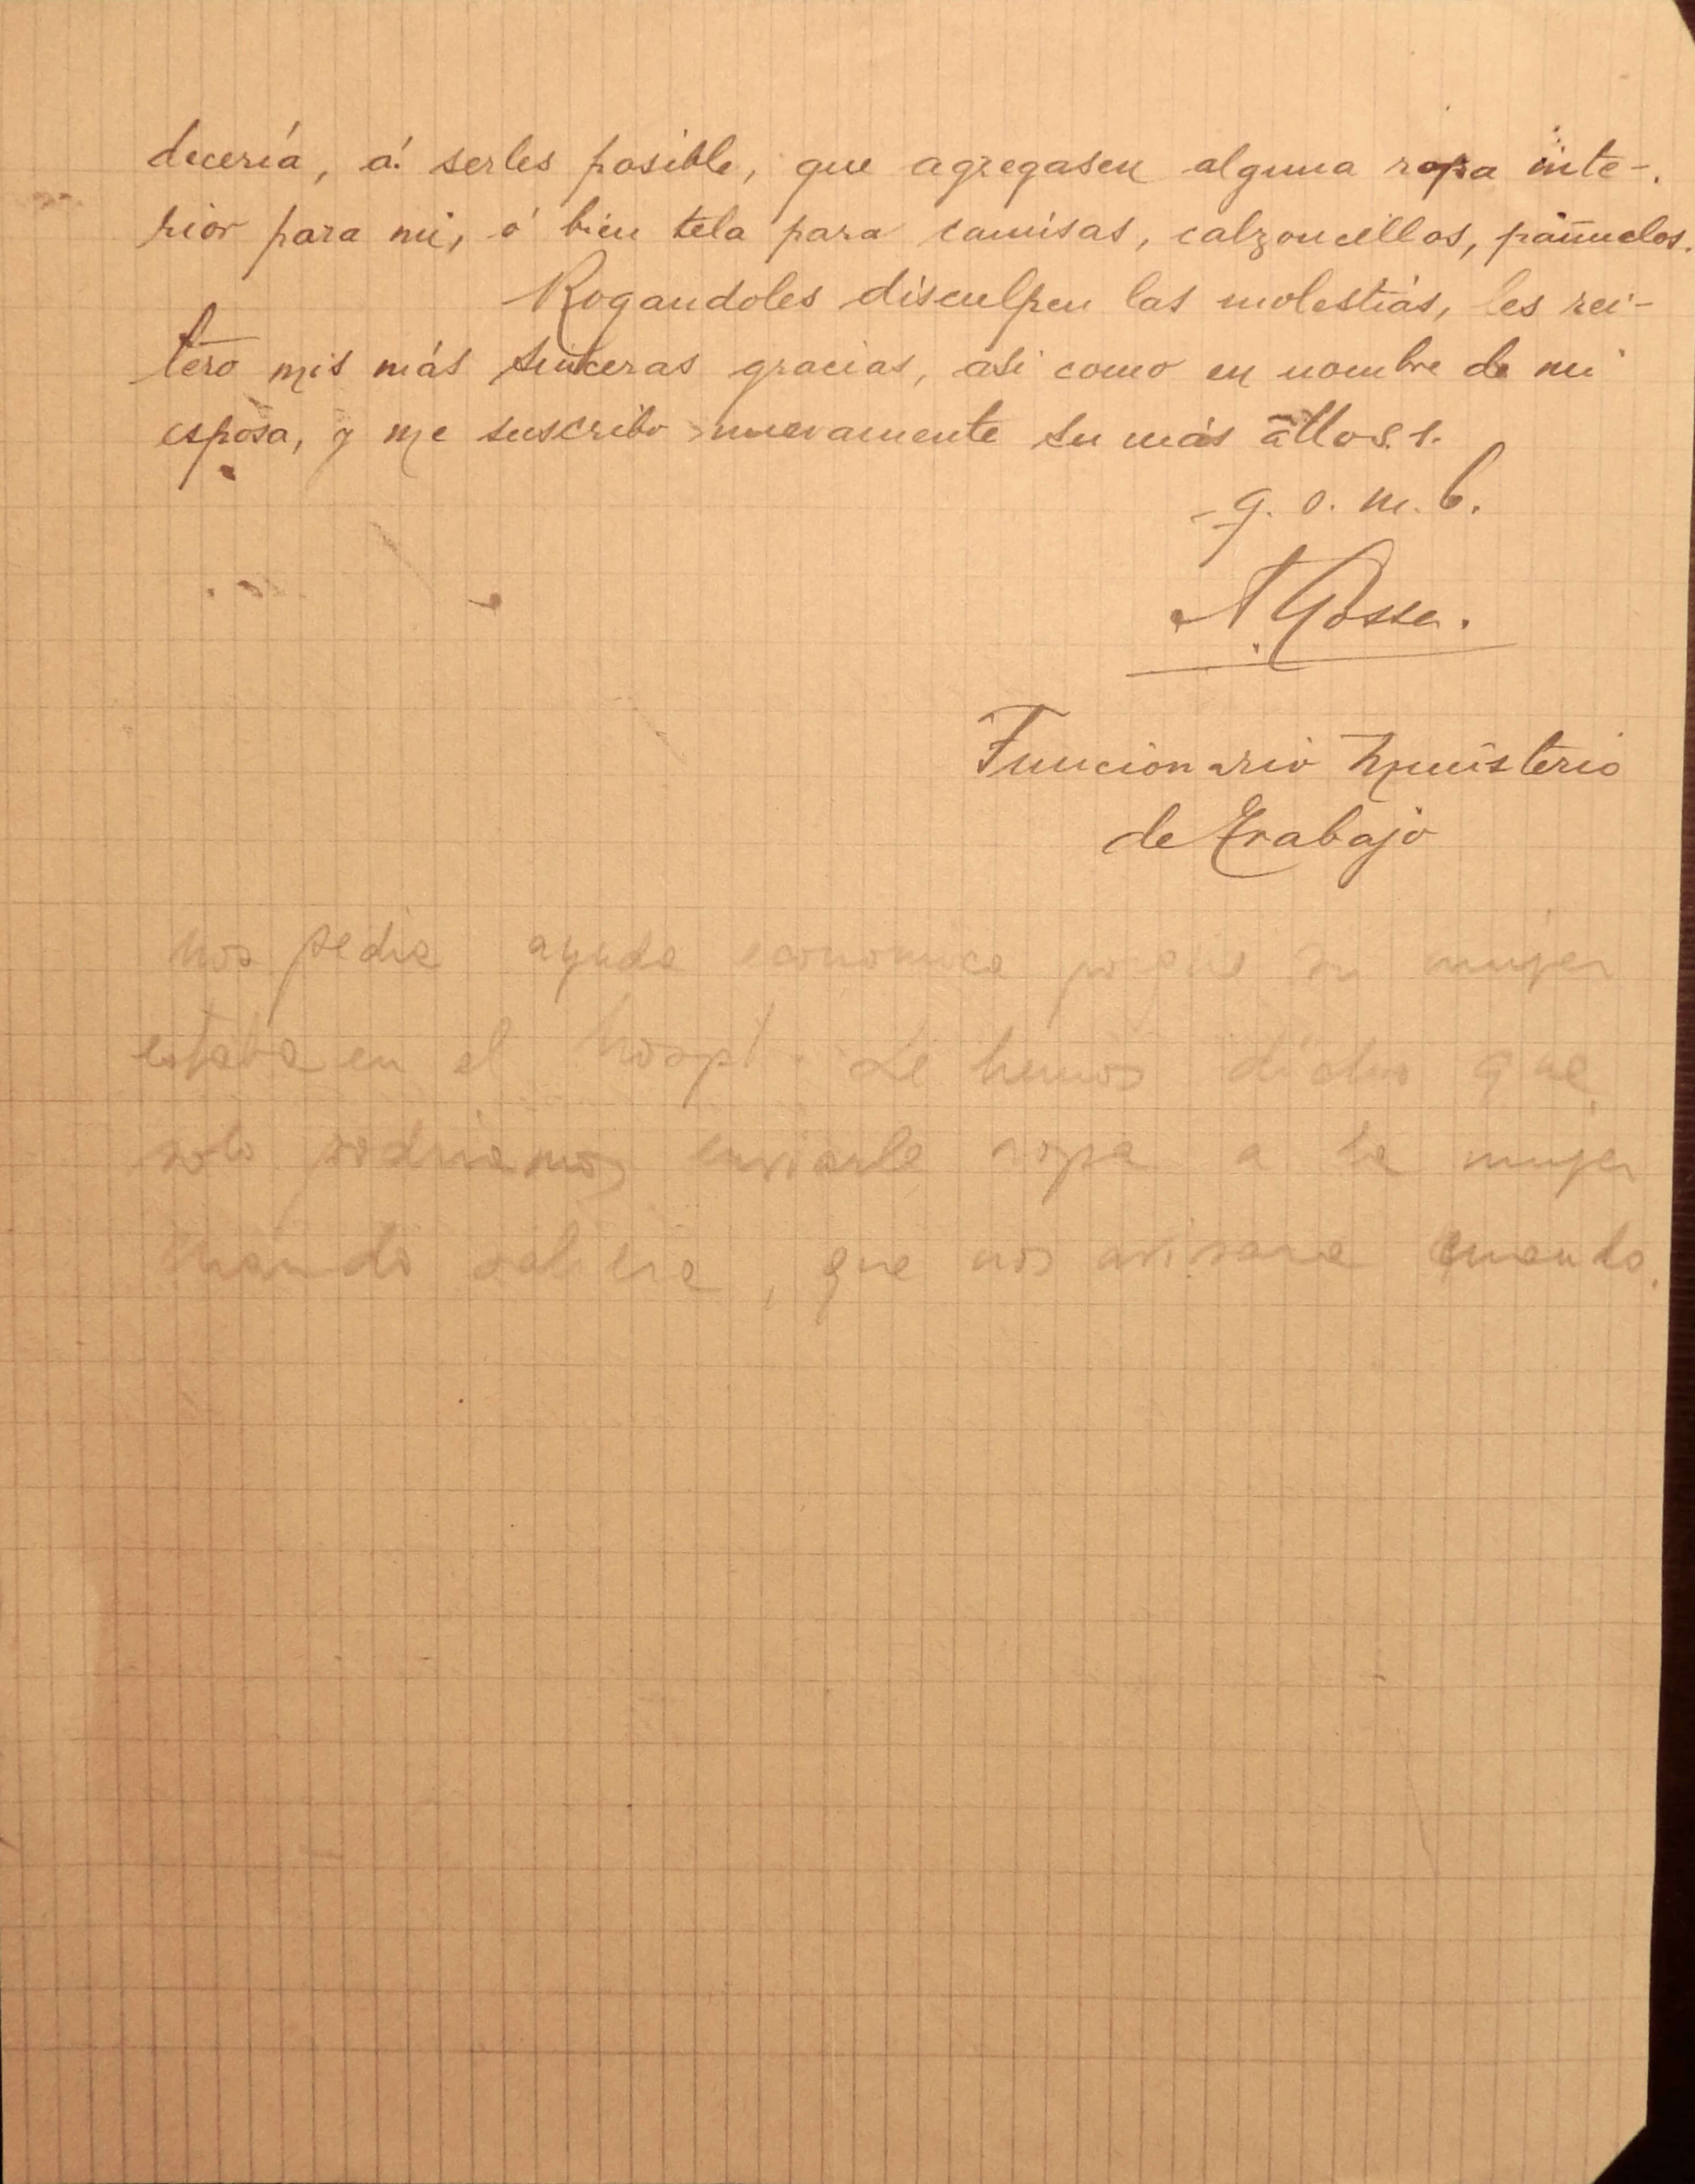 decería, á serles posible, que agregasen alguna ropa inte-
rior para mi, ó bien tela para camisas, calzoncillos, pañuelos.
Rogandoles disculpen las molestias, les rei-
tero mis más sinceras gracias, asi como en nombre de mi
esposa, y me suscribo nuevamente su más atto s. s.
q. e. m. b.
Funcionario Ministerio
de Trabajo
nos pedia ayuda economica porque su mujer
estaba en el hospt. Le hemos dicho que
solo podriamos enviarle ropa a la mujer
cuando saliera, que nos avisara cuando.